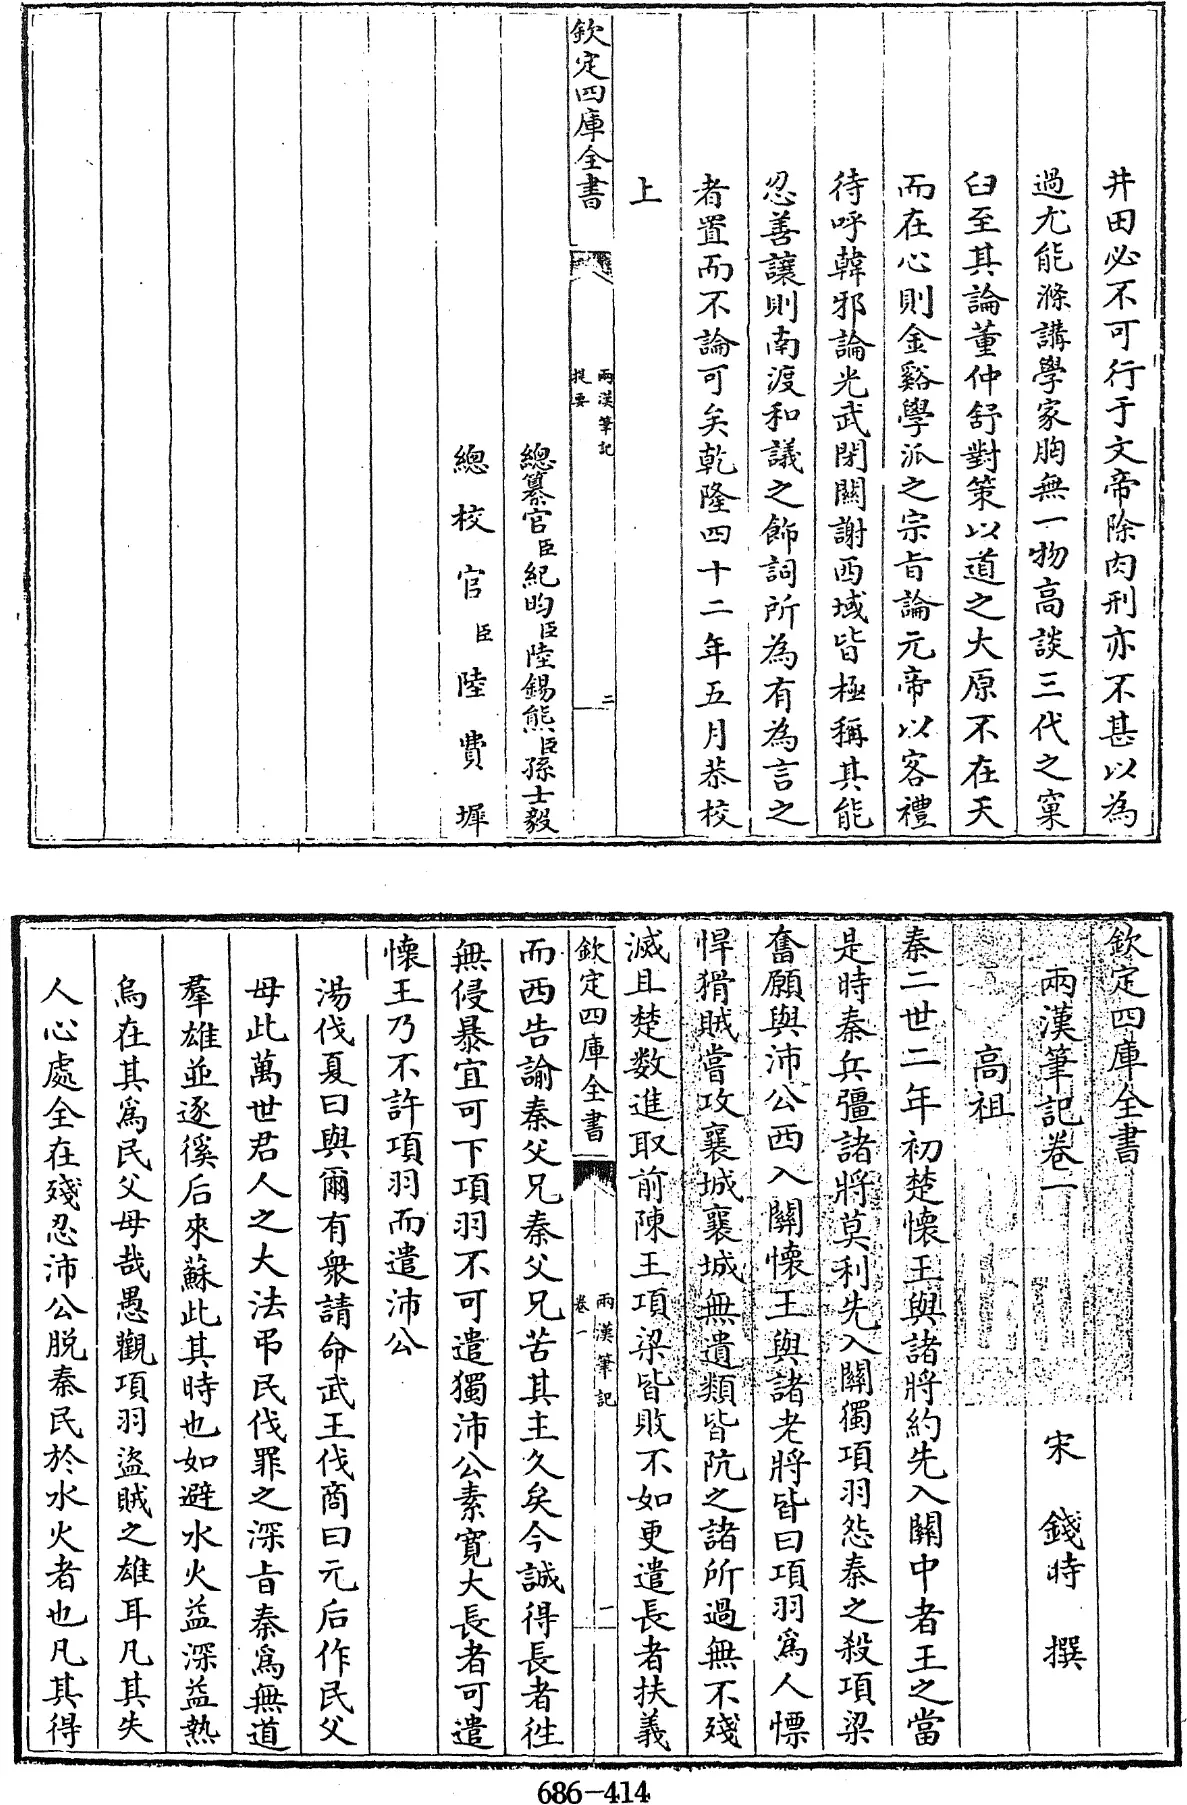 井田必不可行于文帝除肉刑亦不甚以為
過尤能滌講學家胸無一物高談三代之窠
臼至其論董仲舒對策以道之大原不在天
而在心則金谿學派之宗旨論元帝以客禮
待呼韓邪論光武閉關謝西域皆極稱其能
忍善讓則南渡和議之飾詞所為有為言之
者置而不論可矣乾隆四十二年五月恭校
上
欽定四庫全書
兩漢筆記
提要
二
總纂官臣紀昀臣陸錫熊臣孫士毅
總校官臣陸費墀
欽定四庫全書
兩漢筆記卷一
宋 錢時 撰
高祖
秦二世二年初楚懷王與諸將約先入關中者王之當
是時秦兵彊諸將莫利先入關獨項羽怨秦之殺項梁
奮願與沛公西入關懷王與諸老將皆曰項羽為人慓
悍猾賊嘗攻襄城襄城無遺類皆阬之諸所過無不殘
滅且楚數進取前陳王項梁皆敗不如更遣長者扶義
欽定四庫全書
兩漢筆記
卷一
一
而西告諭秦父兄秦父兄苦其主久矣今誠得長者往
無侵暴宜可下項羽不可遣獨沛公素寬大長者可遣
懷王乃不許項羽而遣沛公
湯伐夏曰與爾有衆請命武王伐商曰元后作民父
母此萬世君人之大法弔民伐罪之深旨秦為無道
羣雄並逐徯后來蘇此其時也如避水火益深益熱
烏在其為民父母哉愚觀項羽盜賊之雄耳凡其失
人心處全在殘忍沛公脫秦民於水火者也凡其得
686-414